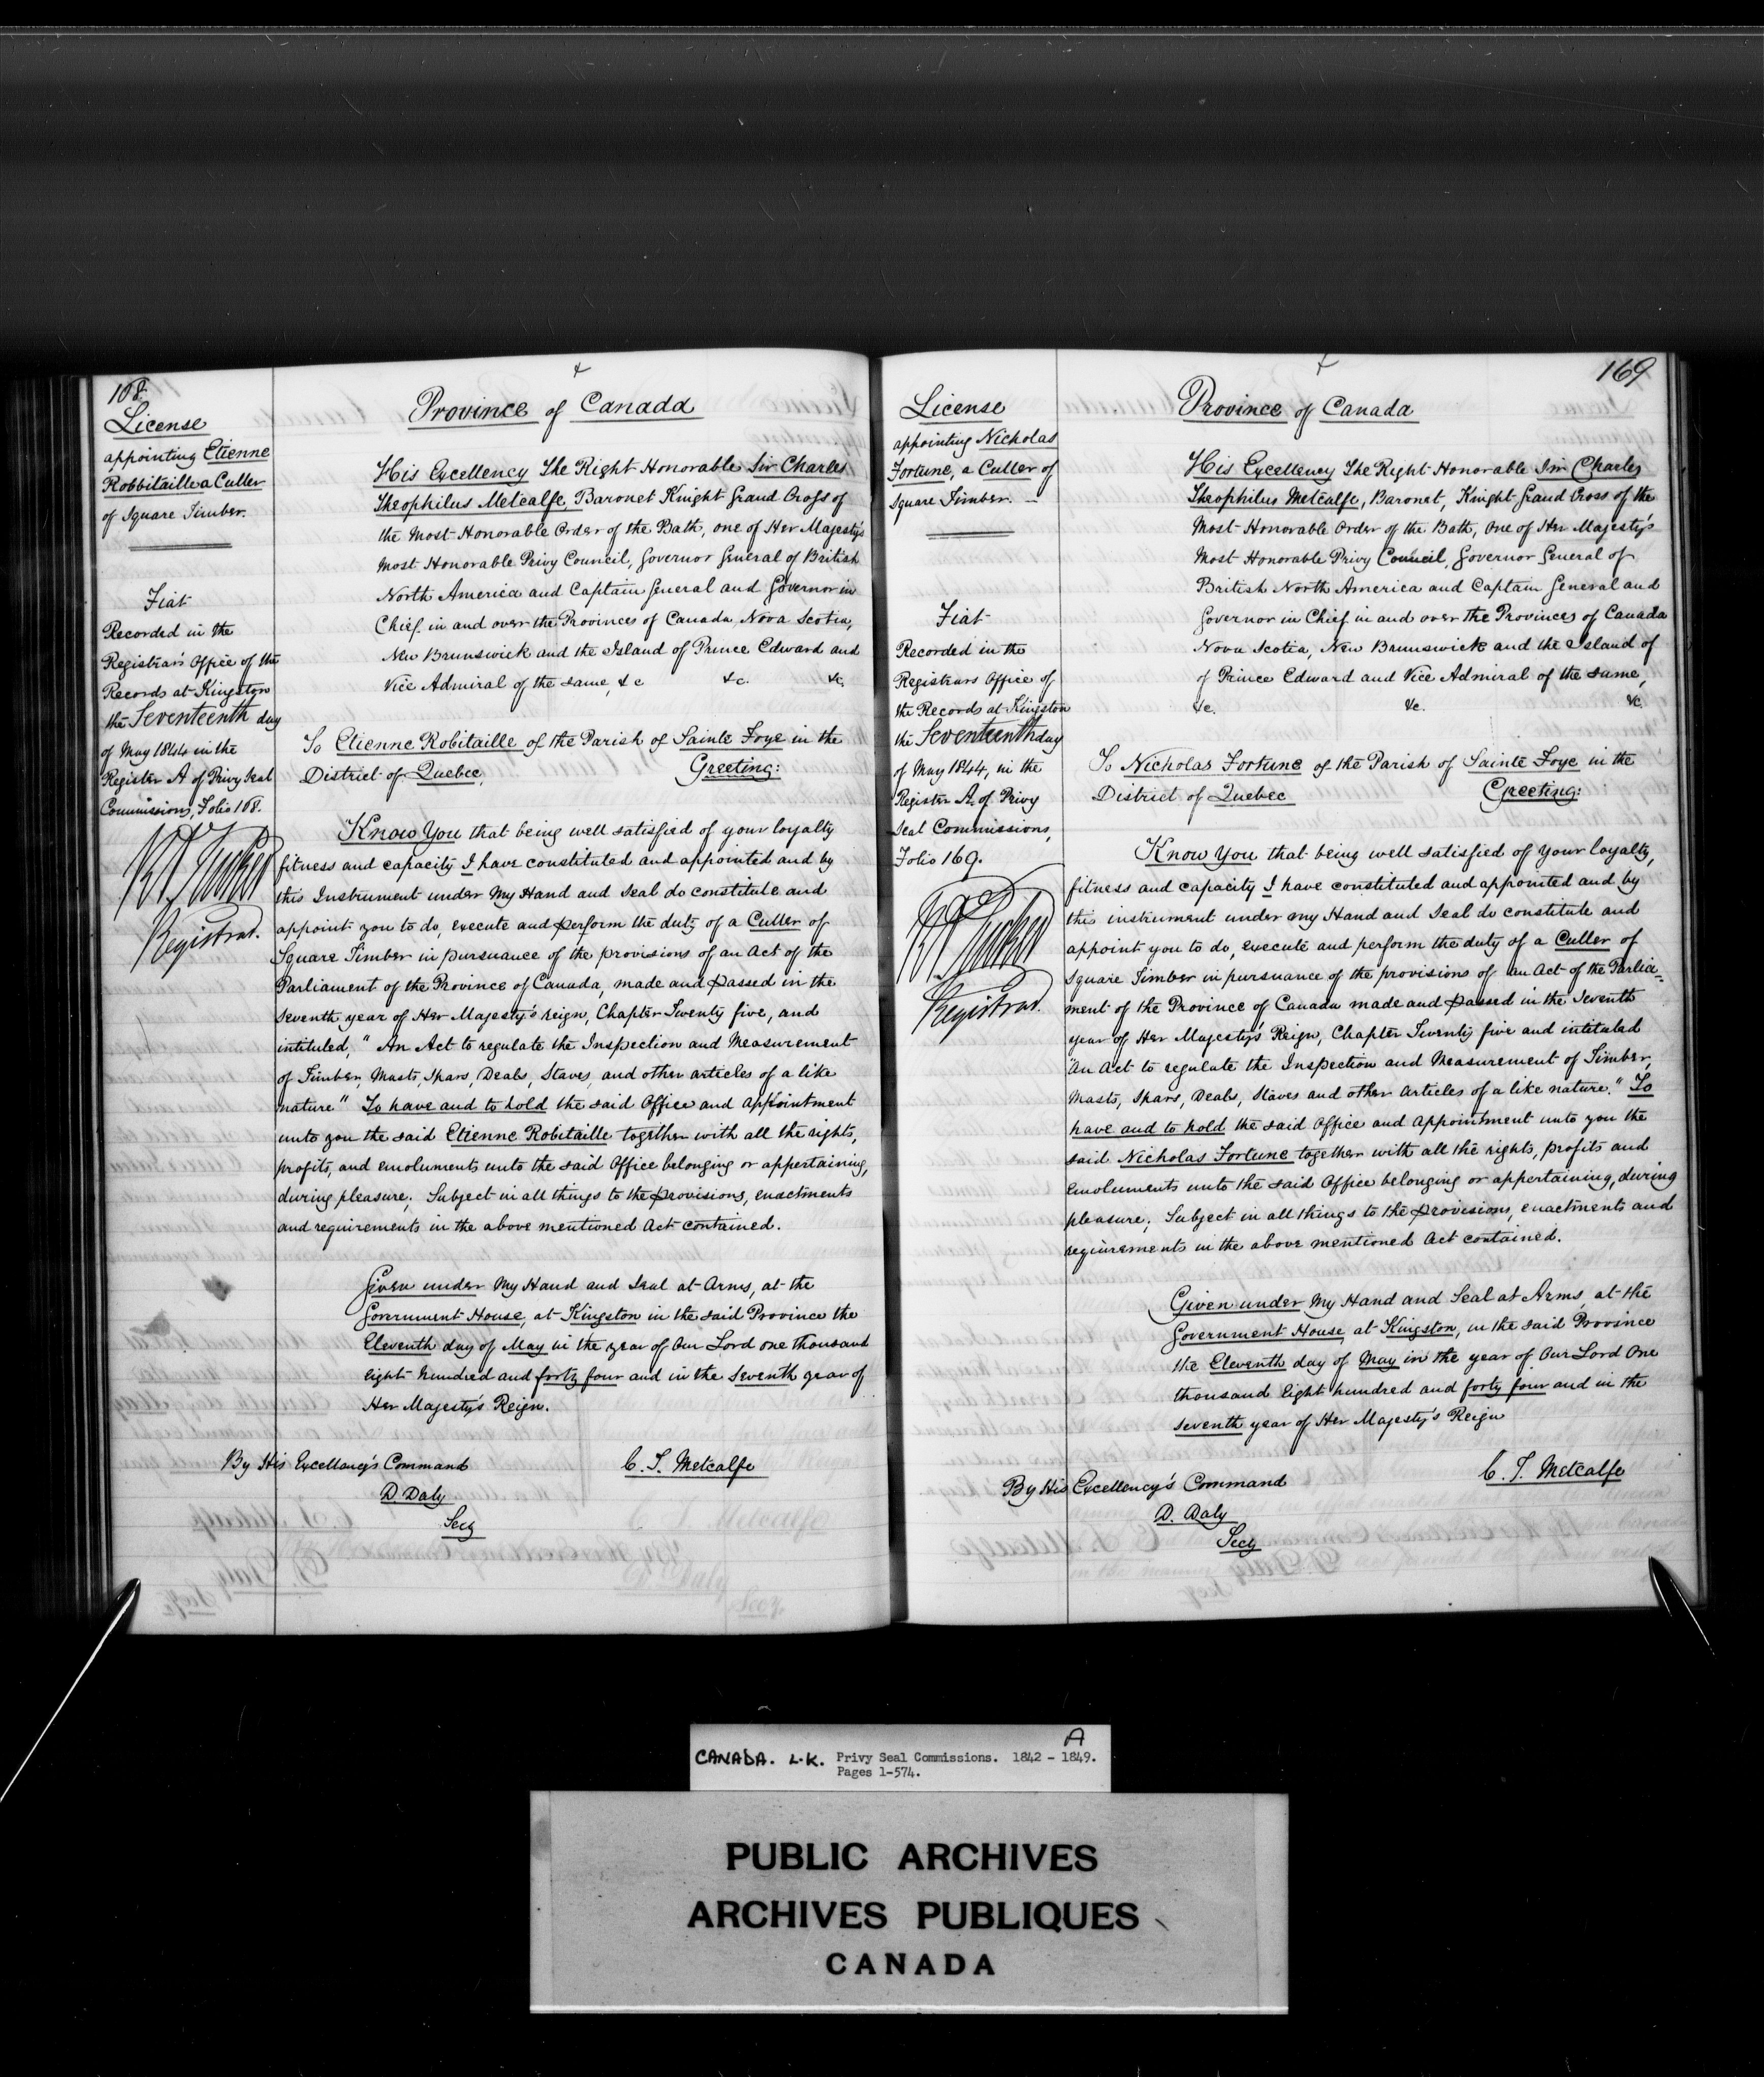 168.
License
appointing Etienne
Robbitaille a Culler
of Square Timber.
Fiat
Recorded in the
Registrar's Office of the
Records at Kingston
the Seventeenth day
of May 1844 in the
Register A of Privy Seal
Commissions, Folio 168.
Registrar.
Province of Canada
His Excellency The Right Honorable Sir Charles
Theophilus Metcalfe, Baronet Knight Grand Cross of
the Most Honorable Order of the Bath, one of Her Majesty's
Most Honorable Privy Council, Governor General of British
North America and Captain General and Governor in
Chief in and over the Provinces of Canada, Nova Scotia,
New Brunswick and the Island of Prince Edward and
Vice Admiral of the same, &c &c. &c.
To Etienne Robitaille of the Parish of Sainte Foye in the
District of Quebec, Greeting:
Know You that being well satisfied of your loyalty
fitness and capacity I have constituted and appointed and by
this Instrument under My Hand and Seal do constitute and
appoint you to do, execute and perform the duty of a Culler of
Square Timber in pursuance of the provisions of an Act of the
Parliament of the Province of Canada, made and passed in the
Seventh year of Her Majesty's reign, Chapter Twenty five, and
intituled, "An Act to regulate the Inspection and Measurement
of Timber, Masts, Spars, Deals, Staves, and other articles of a like
nature" To have and to hold the said Office and Appointment
unto you the said Etienne Robitaille together with all the rights,
profits, and emoluments unto the said Office belonging or appertaining,
during pleasure; Subject in all things to the provisions, enactments
and requirements in the above mentioned Act contained.
Given under My Hand and Seal at Arms, at the
Government House, at Kingston in the said Province the
Eleventh day of May in the year of Our Lord one thousand
eight hundred and forty four and in the Seventh year of
Her Majesty's Reign.
By His Excellency's Command C. T. Metcalfe
D. Daly
Secy
169
License
appointing Nicholas
Fortune, a Culler of
Square Timber. —
Fiat
Recorded in the
Registrars Office of
the Records at Kingston
the Seventeenth day
of May 1844, in the
Register A. of Privy
Seal Commissions,
Folio 169.
Registrar.
Province of Canada
His Excellency The Right Honorable Sir Charles
Theophilus Metcalfe, Baronet, Knight Grand Cross of the
Most Honorable Order of the Bath, One of Her Majesty's
Most Honorable Privy Council, Governor General of
British North America and Captain General and
Governor in Chief in and over the Provinces of Canada
Nova Scotia, New Brunswick and the Island of
of Prince Edward and Vice Admiral of the same,
&c. &c. &c
To Nicholas Fortune of the Parish of Sainte Foye in the
District of Quebec Greeting:
Know You that being well satisfied of your loyalty,
fitness and capacity I have constituted and appointed and by
this instrument under my Hand and Seal do constitute and
appoint you to do, execute and perform the duty of a Culler of
Square Timber in pursuance of the provisions of an Act of the Parlia-
ment of the Province of Canada made and passed in the Seventh
year of Her Majesty's Reign, Chapter Twenty five and intituled
"An Act to regulate the Inspection and Measurement of Timber,
Masts, Spars, Deals, Staves and other Articles of a like nature." To
have and to hold the said Office and Appointment unto you the
said Nicholas Fortune together with all the rights, profits and
emoluments unto the said Office belonging or appertaining, during
pleasure; Subject in all things to the provisions, enactments and
requirements in the above mentioned Act contained.
Given under My Hand and Seal at Arms, at the
Government House, at Kingston, in the said Province
the Eleventh day of May in the year of Our Lord One
thousand Eight hundred and forty four and in the
Seventh year of Her Majesty's Reign
By His Excellency's Command C. T. Metcalfe
D. Daly
Secy
A
CANADA. L.K. Privy Seal Commissions. 1842 - 1849.
Pages 1-574.
PUBLIC ARCHIVES
ARCHIVES PUBLIQUES
CANADA